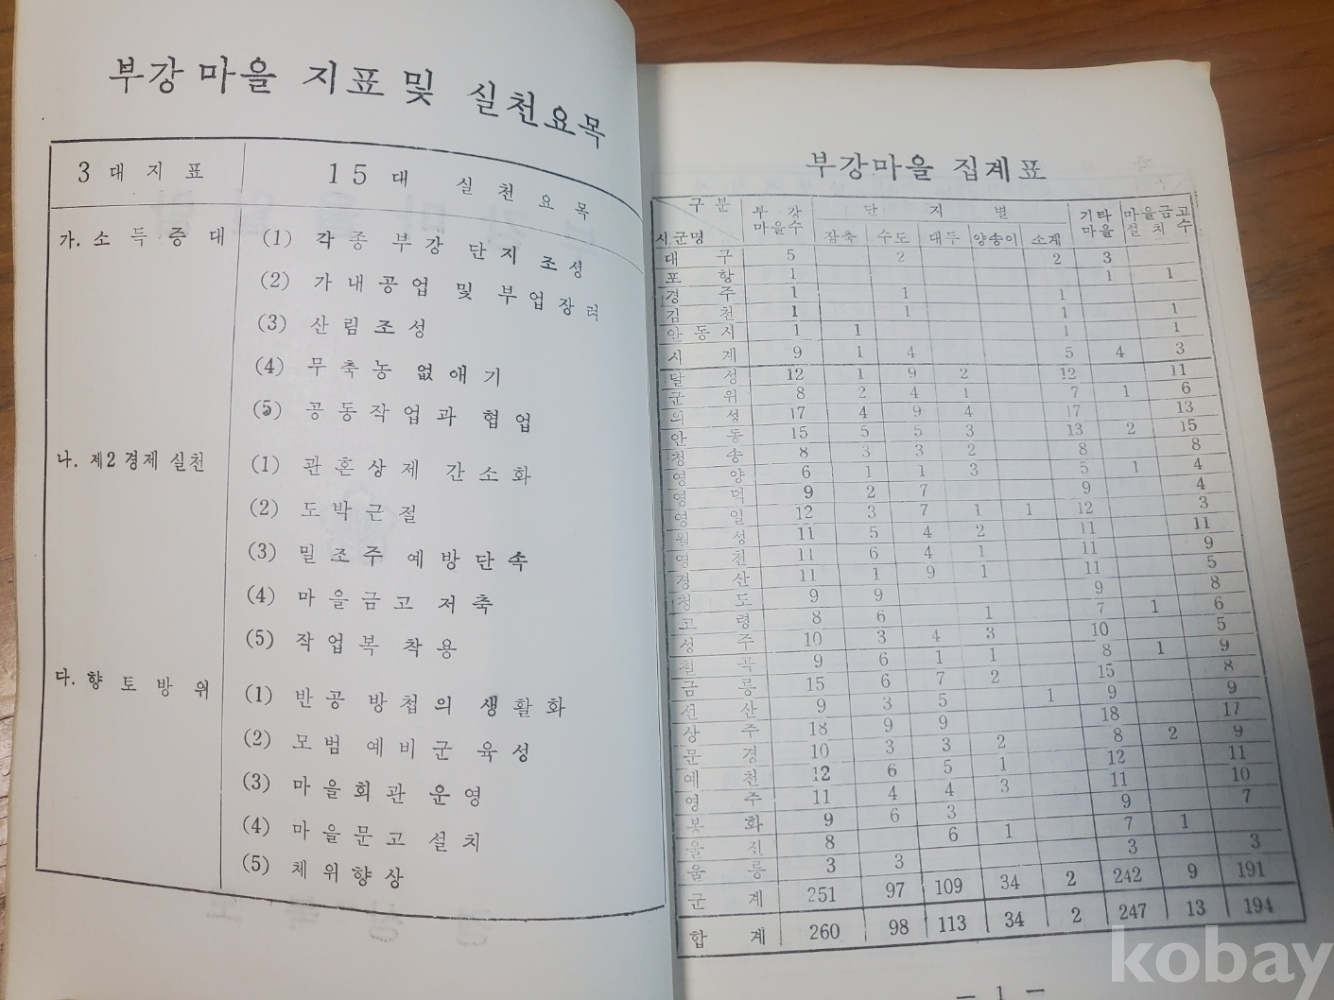 부강마을 지표 및 실천요목
3대지표 15대 실천요목
가. 소득증대 (1) 각종 부강 단지 조성
(2) 가내공업 및 부업장려
(3) 산림조성
(4) 무축농 없애기
(5) 공동작업과 협업
나. 제2경제 실천 (1) 관혼상제 간소화
(2) 도박근절
(3) 밀조주 예방단속
(4) 마을금고 저축
(5) 작업복 착용
다. 향토방위 (1) 반공 방첩의 생활화
(2) 모범예비군 육성
(3) 마을회관 운영
(4) 마을문고 설치
(5) 체위향상
부강마을 집계표
구분 부강 단지별 기타 마을금고
시군명 마을수 잠축 수도 대두 양송이 소계 마을 설치수
대구 5 2 2 3
포항 1 1 1
경주 1 1 1
김천 1 1 1 1
안동시 1 1 1 1
시계 9 1 4 5 4 3
달성 12 1 9 2 12 11
군위 8 2 4 1 7 1 6
의성 17 4 9 4 17 13
안동 15 5 5 3 13 2 15
청송 8 3 3 2 8 8
영양 6 1 1 3 5 1 4
영덕 9 2 7 9 4
영일 12 3 7 1 1 12 3
월성 11 5 4 2 11 11
영천 11 6 4 1 11 9
경산 11 1 9 1 11 5
청도 9 9 9 8
고령 8 6 1 7 1 6
성주 10 3 4 3 10 5
칠곡 9 6 1 1 8 1 9
금릉 15 6 7 2 15 8
선산 9 3 5 1 9 9
상주 18 9 9 18 17
문경 10 3 3 2 8 2 9
예천 12 6 5 1 12 11
영주 11 4 4 3 11 10
봉화 9 6 3 9 7
울진 8 6 1 7 1
울릉 3 3 3 3
군계 251 97 109 34 2 242 9 191
합계 260 98 113 34 2 247 13 194
— 1 —
kobay